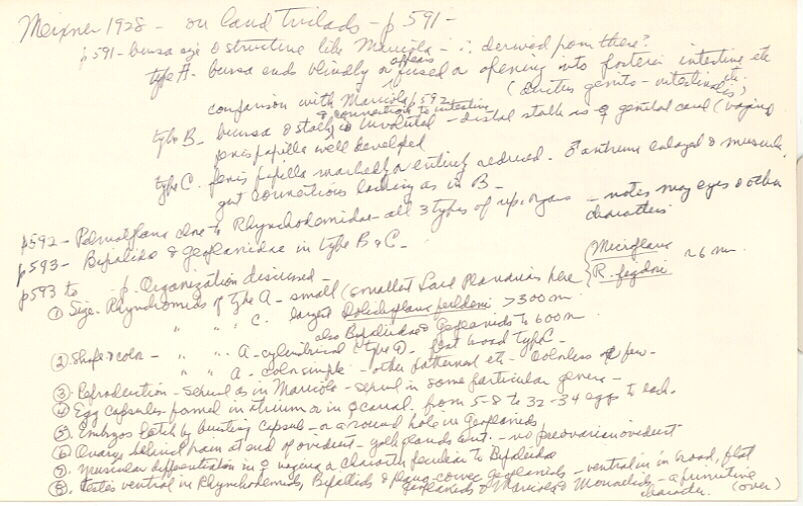 Meixner 1928 - on land triclads - p 591 -
p 591 - bursa size & structure like Maricola - ∴ derived from there?
type A - bursa ends blindly or appears fused or opening into posterior intestine etc
(ductus genito-intestinalis) etc.
comparison with Maricola p 592
& connection to intestine
type B - bursa & stalk is involuted - distal stalk as ♀ genital canal (vagina)
penis papilla well developed
type C. penis papilla markedly or entirely reduced. ♂ antrum enlarged & muscular.
gut connections lacking as in B -
p 592 - close to Rhynchodemidae - all 3 types of rep. organs - notes many eyes & other
characters
p 593 - Bipalidae & Geoplanidae in type B & C -
p 593 to p. Organization discussed -
① Size - Rhynchodemids of type A - small (smallest Land Planarians here { Microplana
R. ~ 6 mm.
" " " C. largest > 300 m
also Bipalidae & Geoplanids to 600 m
② Shape & color - " " A - cylindrical (type A) - flat broad type C -
" " A - color simple - other patterned etc - Colorless few -
③ Reproduction - sexual as in Maricola - sexual in some particular genera -
④ Egg capsules formed in atrium or in ♀ canal. from 5-8 to 32-34 eggs to each.
⑤ Embryos hatch by bursting capsule - or a round hole in Geoplanids
⑥ Ovaries behind brain at end of oviduct - yolk glands - no preovarian oviduct
⑦ Muscular differentiation in ♀ vagina a character peculiar to Bipalidae
⑧ testes ventral in Rhynchodemids, Bipalids & Geoplanids - ventral in broad, flat
Geoplanids & Maricola & - a primitive
character. (over)